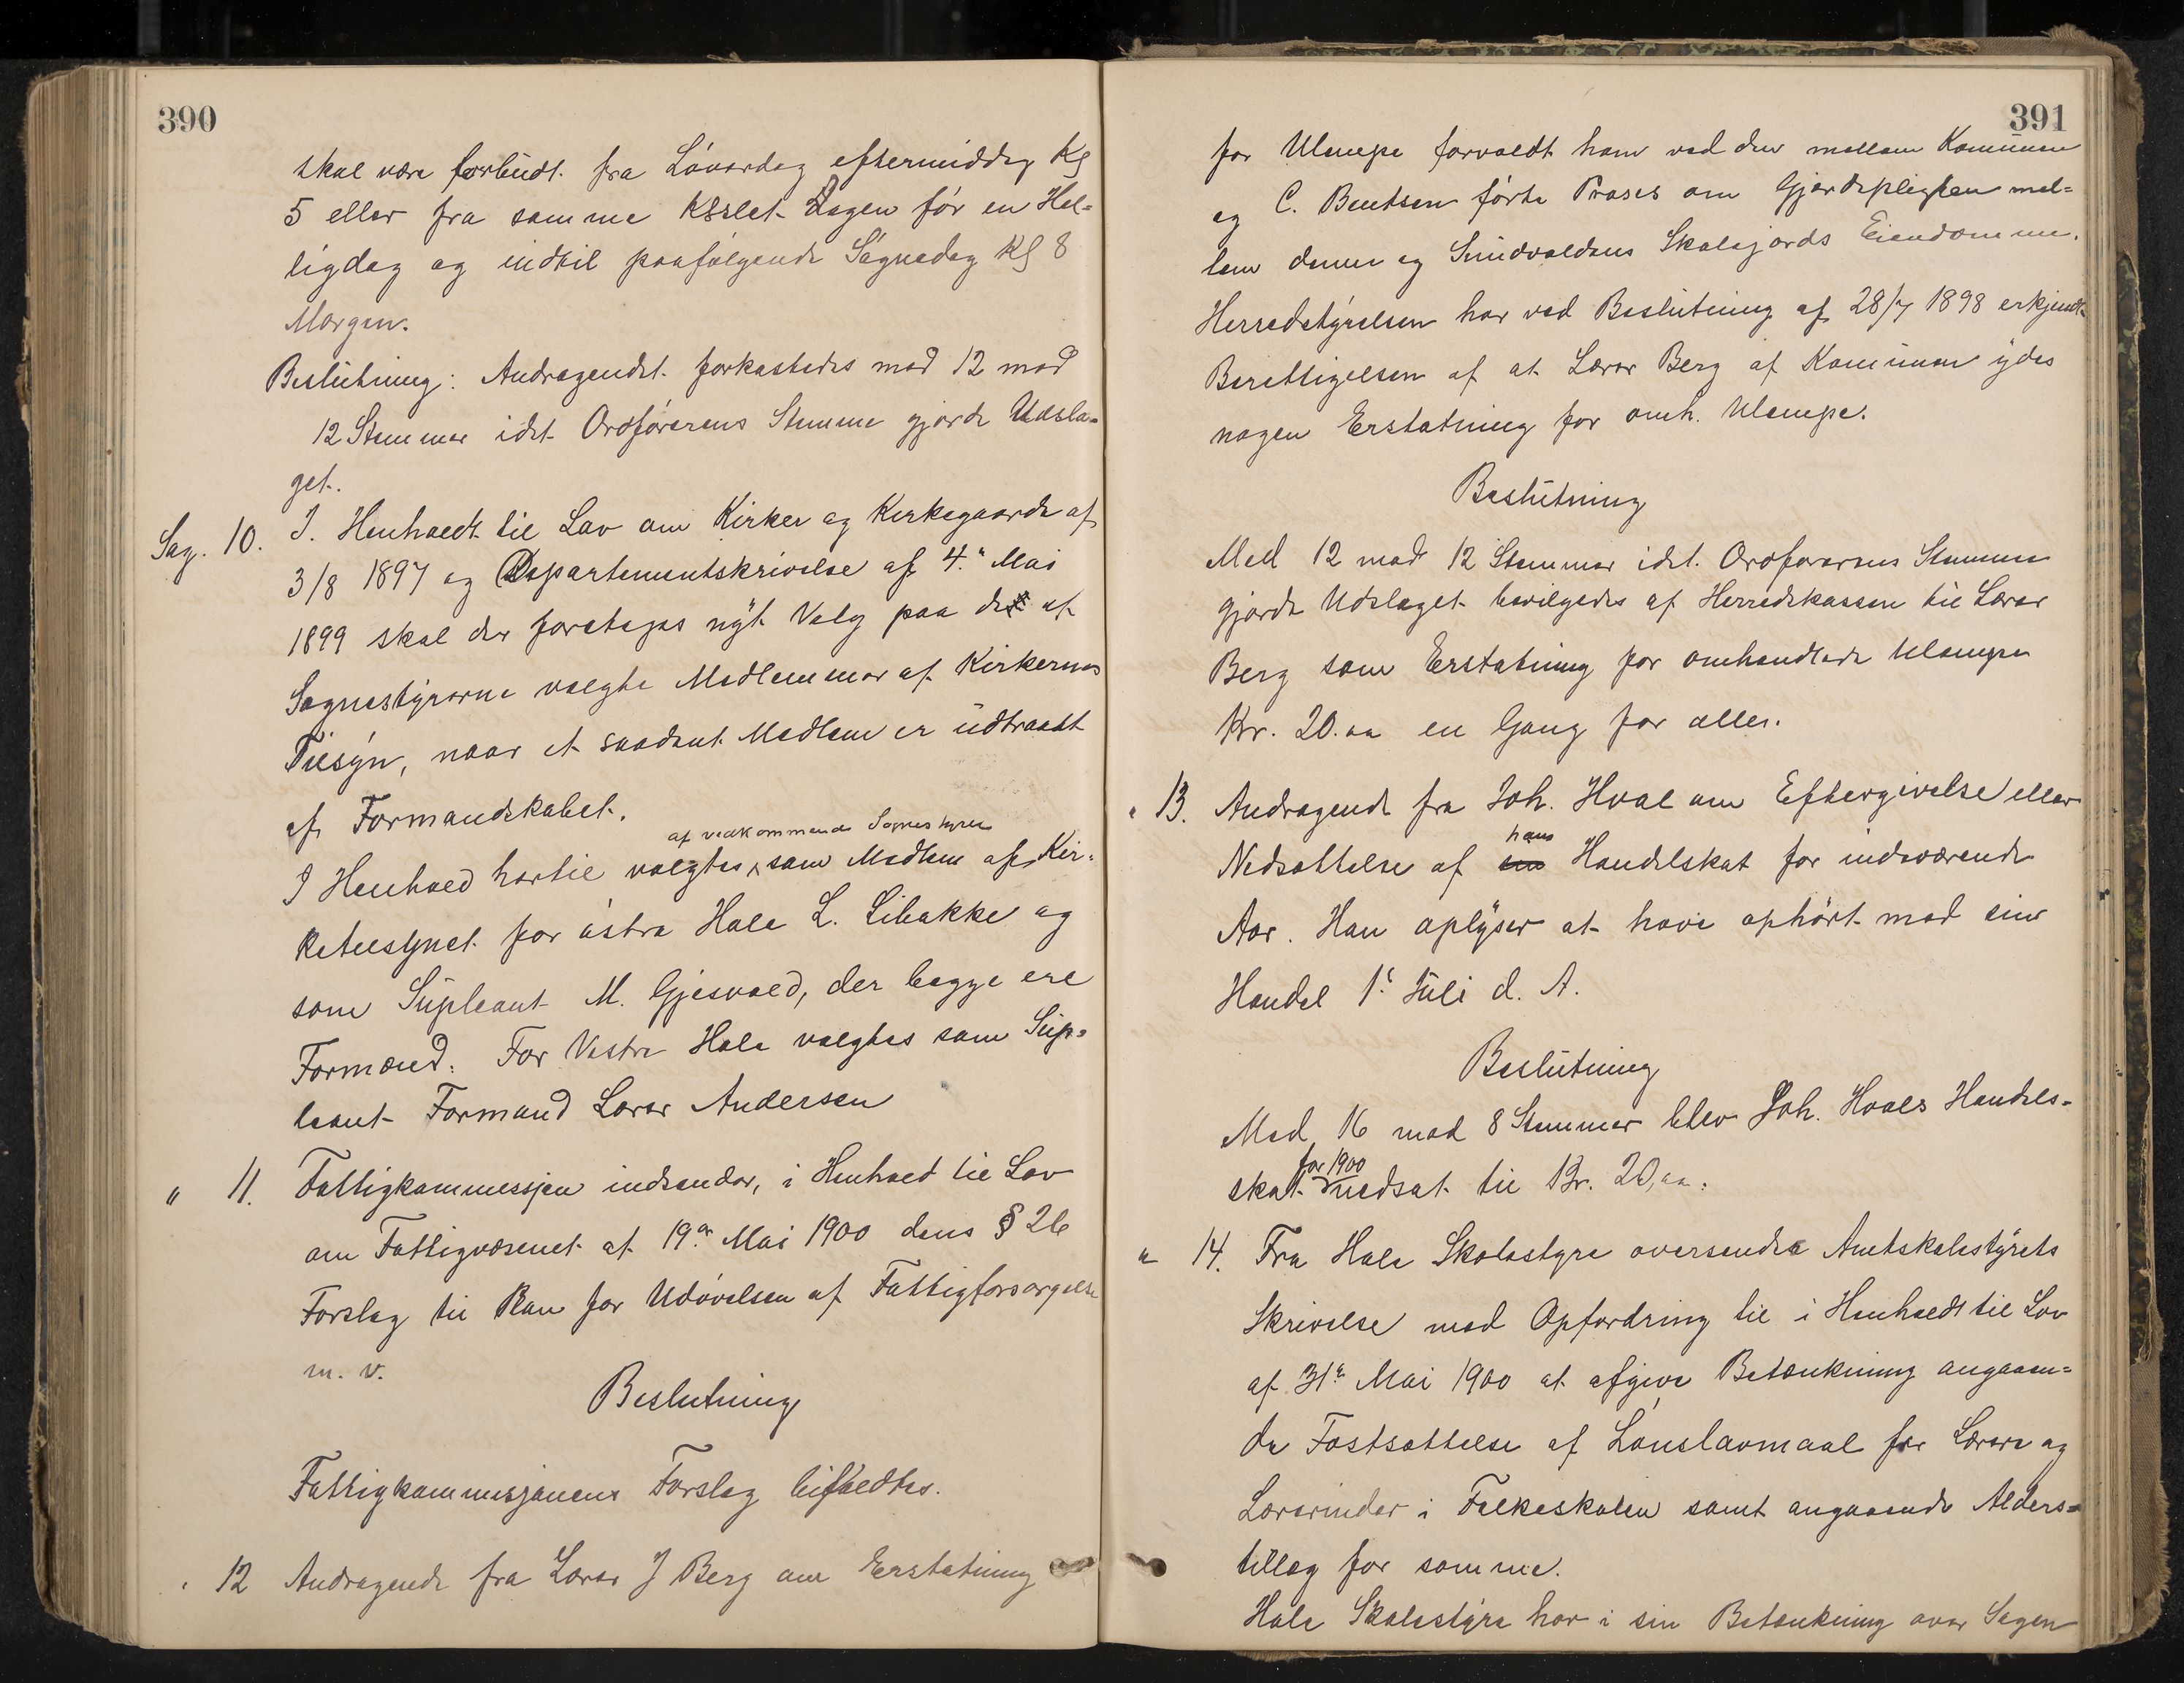 390
skal være forbudt fra Løverdag eftermiddag Kl
5 eller fra samme Klslet Dagen før en Hel-
ligdag og indtil paafølgende Søgnedag Kl 8
Morgen.
Beslutning: Andragendet forkastedes med 12 mod
12 Stemmer idet Ordførerens Stemme gjorde Udsla-
get.
Sag. 10. I Henhold til Lov om Kirker og Kirkegaarde af
3/8 1897 og Departementskrivelse af 4. Mai
1899 skal der foretages nyt Valg paa de af
Sognestyrerne valgte Medlemmer af Kirkernes
Tilsyn, naar et saadant Medlem er udtraadt
af Formandskabet.
af vedkommende Sognestyre
I Henhold hertil valgtes som Medlem af Kir-
ketilsynet for østre Hole L. Libakke og
som Supleant M. Gjesvold, der begge ere
Formænd. For Vestre Hole valgtes som Sup-
leant Formand Lærer Andersen
" 11. Fattigkommissjen indsender, i Henhold til Lov
om Fattigvæsenet af 19de Mai 1900 dens § 26
Forslag til Plan for Udøvelsen af Fattigforsorgelse
m. v.
Beslutning
Fattigkommisjonens Forslag bifaldtes.
" 12 Andragende fra Lærer J Berg om Erstatning
391
for Ulempe forvoldt ham ved den mellem Komunen
og C. Bentsen førte Proses om Gjerdepligten mel-
lem denne og Sundvoldens Skolejords Eiendomme.
Herredstyrelsen har ved Beslutning af 28/7 1898 erkjendt
Berettigelsen af at Lærer Berg af Komunen ydes
nogen Erstatning for omh. Ulempe.
Beslutning
Med 12 mod 12 Stemmer idet Ordførerens Stemme
gjorde Udslaget bevilgedes af Herredskassen til Lærer
Berg som Erstatning for omhandlede Ulempe
Kr. 20.00 en Gang for alle.
" 13. Andragende fra Joh. Hval om Eftergivelse eller
hans
Nedsættelse af sin Handelskat for indeværende
Aar. Han oplyser at have ophørt med sin
Handel 1. Juli d. A.
Beslutning
Med 16 mod 8 Stemmer blev Joh. Hvals Handels-
for 1900
skat nedsat til Kr. 20,00.
" 14. Fra Hole Skolestyre oversendes Amtskolestyrets
Skrivelse med Opfordring til i Henhold til Lov
af 31te Mai 1900 at afgive Betænkning angaaen-
de Fastsættelse af Lønslavmaal for Lærere og
Lærerinder i Folkeskolen samt angaaende Alders-
tillæg for samme.
Hole Skolestyre har i sin Betænkning over Sagen